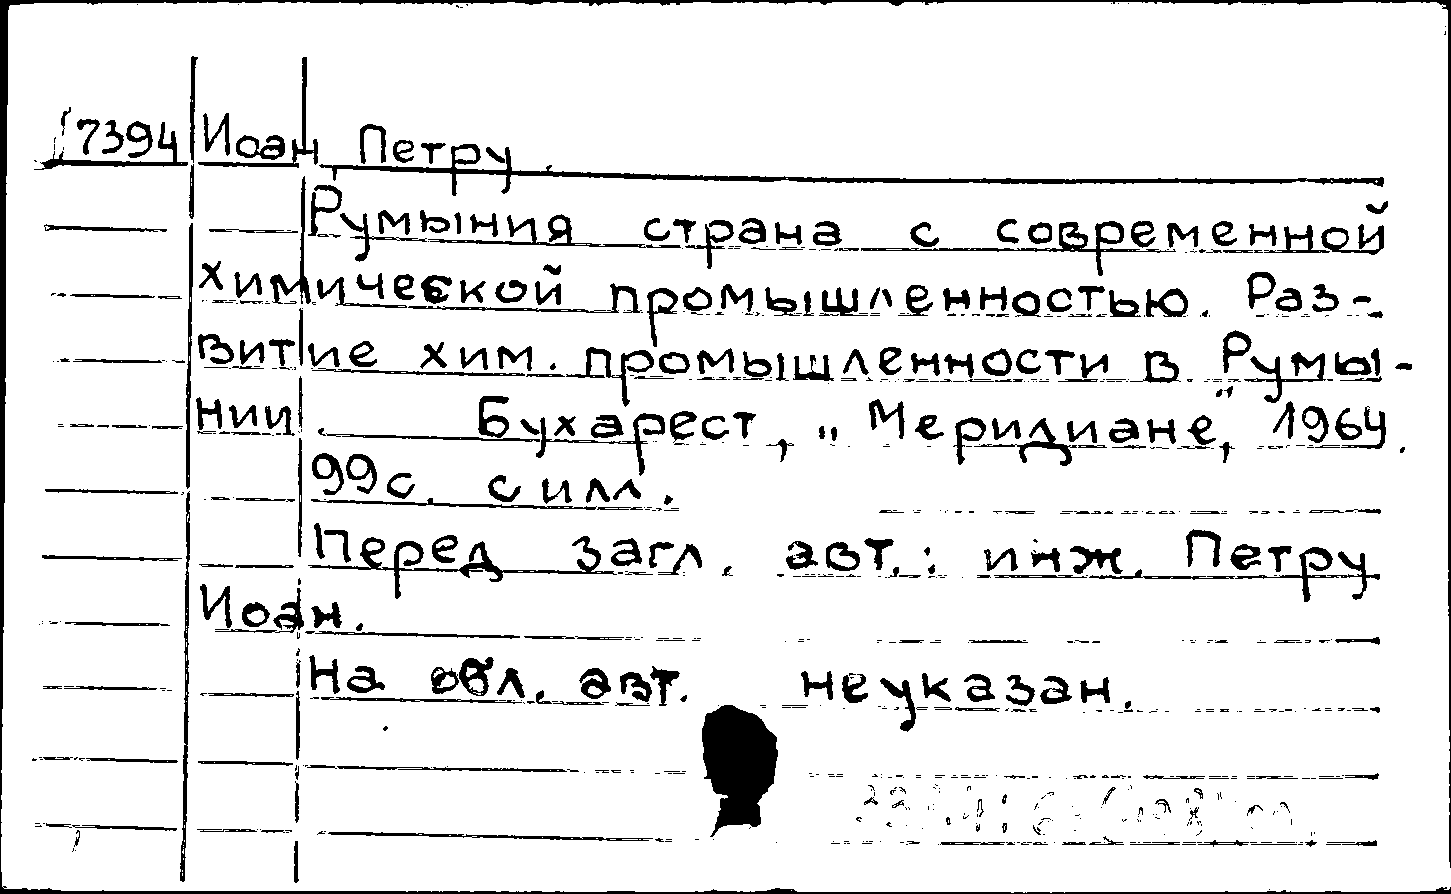 7394 Иоан Петру.
Румыния страна с современной
химической промышленностью. Раз-
витие хим. промышленности в Румы-
нии. Бухарест, „Меридиане", 1964.
99с. с илл.
Перед загл. авт.: инж. Петру
Иоан.
На обл. авт. не указан.